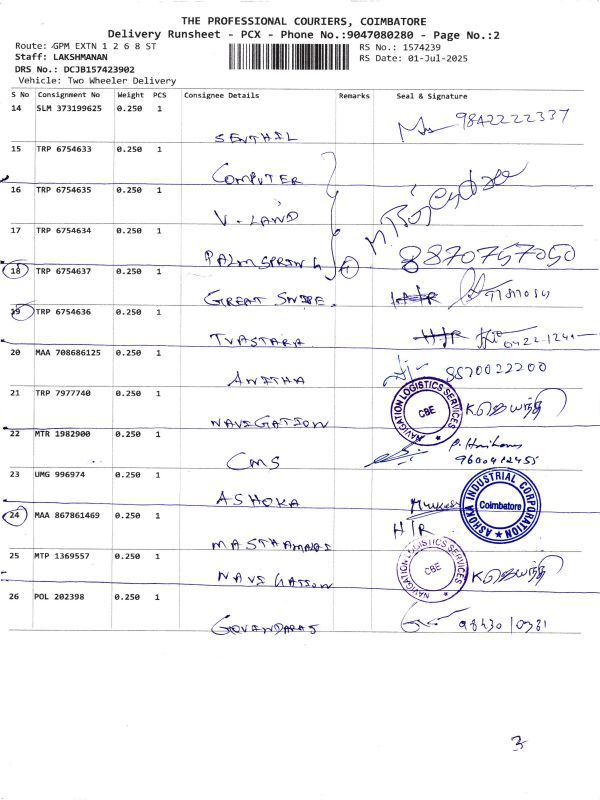 THE PROFESSIONAL COURIERS, COIMBATORE
Delivery Runsheet - PCX - Phone No.:9047080280 - Page No.:2
Route: GPM EXTN 1 2 6 8 ST
Staff: LAKSHMANAN
DRS No.: DCJB157423902
Vehicle: Two Wheeler Delivery
RS No.: 1574239
RS Date: 01-Jul-2025
S No Consignment No Weight PCS Consignee Details Remarks Seal & Signature
14 SLM 373199625 0.250 1
SENTHIL 9842222337
15 TRP 6754633 0.250 1
COMPUTER
16 TRP 6754635 0.250 1
V-LAND
17 TRP 6754634 0.250 1
PALM SPRING 8870757050
18 TRP 6754637 0.250 1
GREAT
19 TRP 6754636 0.250 1
TVASTARA H/R
20 MAA 708686125 0.250 1
ANITHA 8870022200
21 TRP 7977740 0.250 1
NAVIGATION
NAVIGATION LOGISTICS SERVICES
CBE
22 MTR 1982900 0.250 1
CMS
23 UMG 996974 0.250 1
ASHOKA
ASHOKA INDUSTRIAL CORPORATION
Coimbatore
24 MAA 867861469 0.250 1
H/R
25 MTP 1369557 0.250 1
NAVIGATION
NAVIGATION LOGISTICS SERVICES
CBE
26 POL 202398 0.250 1